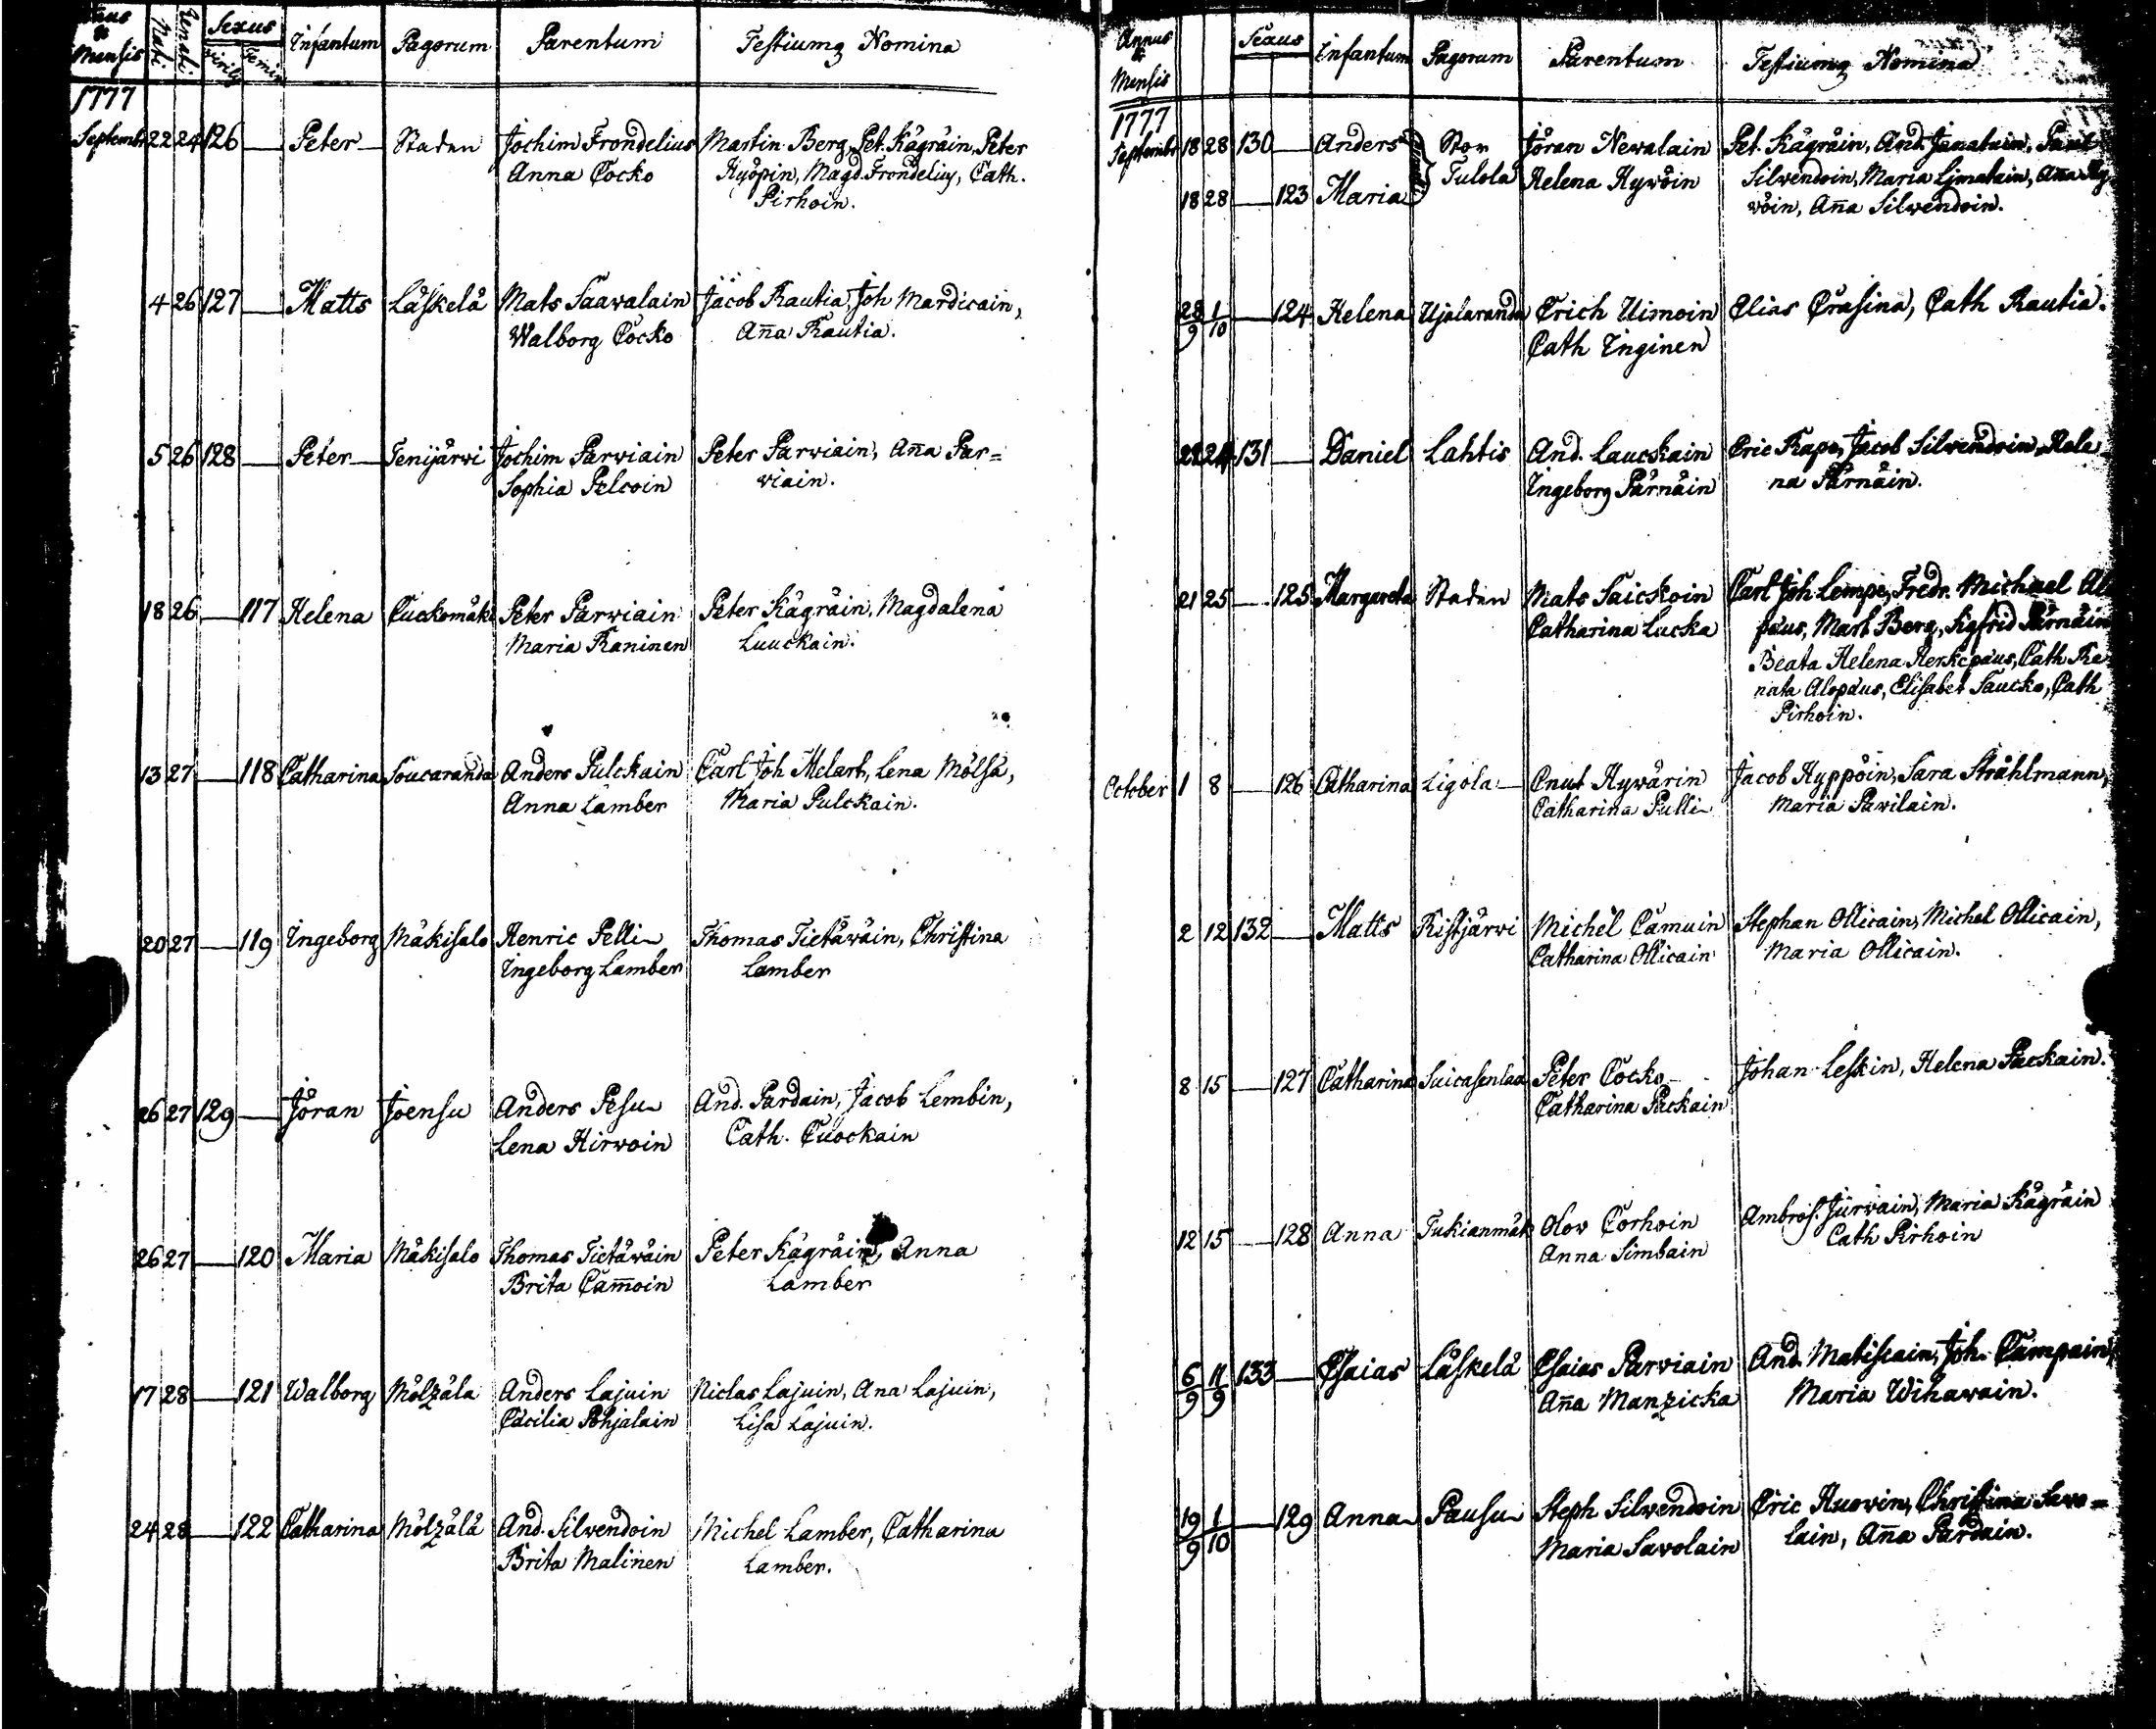 Annus & Mensis Nati Renati Sexus Virilis Femin Infantum Pagorum Parentum Testiumq Nomina
1777
Septembr 22 24 126 — Peter Staden Jochim Frondelius Martin Berg, Pet. Kägräin, Peter
Anna Cocko Hyöpin, Magd. Frondeliu, Cath.
Pirhoin.
4 26 127 — Matts Läskelä Mats Saawalain Jacob Rautia Joh Mardicain,
Walborg Cocko Aña Rautia.
5 26 128 — Peter Tenijärwi Jochim Parwiain Peter Parwiain, Aña Par=
Sophia Pelcoin wiain.
18 26 — 117 Helena Cuckomäki Peter Parwiain Peter Kägräin, Magdalena
Maria Raninen Luuckain.
13 27 — 118 Catharina Soucaranda Anders Pulckain Carl Joh Melart, Lena Mölsä,
Anna Lamber Maria Pulckain.
20 27 — 119 Ingeborg Mäkisalo Henric Pelli Thomas Tietäwäin, Christina
Ingeborg Lamber Lamber
26 27 129 — Jöran Joensu Anders Pesu And. Pardain, Jacob Lembin,
Lena Hirwoin Cath. Cuockain
26 27 — 120 Maria Mäkisalo Thomas Tietäwäin Peter Kägräin, Anna
Brita Cam̄oin Lamber
17 28 — 121 Walborg Mölzälä Anders Lajuin Niclas Lajuin, Ana Lajuin,
Cäcilia Pohjalain Lisa Lajuin.
24 28 — 122 Catharina Mölzälä And. Silvendoin Michel Lamber, Catharina
Brita Malinen Lamber.
Annus & Mensis Sexus Infantum Pagorum Parentum Testiumq Nomina
1777
Septembr 18 28 130 — Anders Stor Jöran Newalain Pet. Kägräin, And.
18 28 — 123 Maria Tulola Helena Hywöin Silvendoin, Maria Aña Hy
wöin, Aña Silvendoin.
28/9 1/10 — 124 Helena Ujalaranda Erich Uimoin Elias Orasina, Cath Rautia.
Cath Inginen
22 24 131 — Daniel Lahtis And. Lauckain Eric Rapo, Jacob Silvendoin, Hele
Ingeborg Pärnäin na Pärnäin.
21 25 — 125 Margareta Staden Mats Saickoin Carl Joh Lempe, Fredr. Michael Alo
Catharina Lucka päus, Mart Berg, Sigfrid Pärnäin
Beata Helena Herkepäus, Cath Re
nata Alopäus, Elisabet Saucko, Cath
Pirhoin.
October 1 8 — 126 Catharina Ligola Cnut Hywärin Jacob Hyppöin, Sara Stråhlmann,
Catharina Pulli Maria Pawilain.
2 12 132 — Matts Ristjärwi Michel Camuin Stephan Ollicain, Michel Ollicain,
Catharina Ollicain Maria Ollicain.
8 15 — 127 Catharina Suicasenlax Peter Cocko Johan Leskin, Helena Packain.
Catharina Packain
12 15 — 128 Anna Tukianmäk Olov Corhoin Ambros. Jürwain, Maria Kägräin
Anna Simbain Cath Pirhoin
6/9 11/9 133 — Esaias Läskelä Esaias Parwiain And. Matiscain, Joh. Campain,
Aña Manzicka Maria Wihawain.
19/9 1/10 — 129 Anna Pausu Steph Silvendoin Eric Huowin, Christina Savo=
Maria Savolain lain, Aña Pardain.